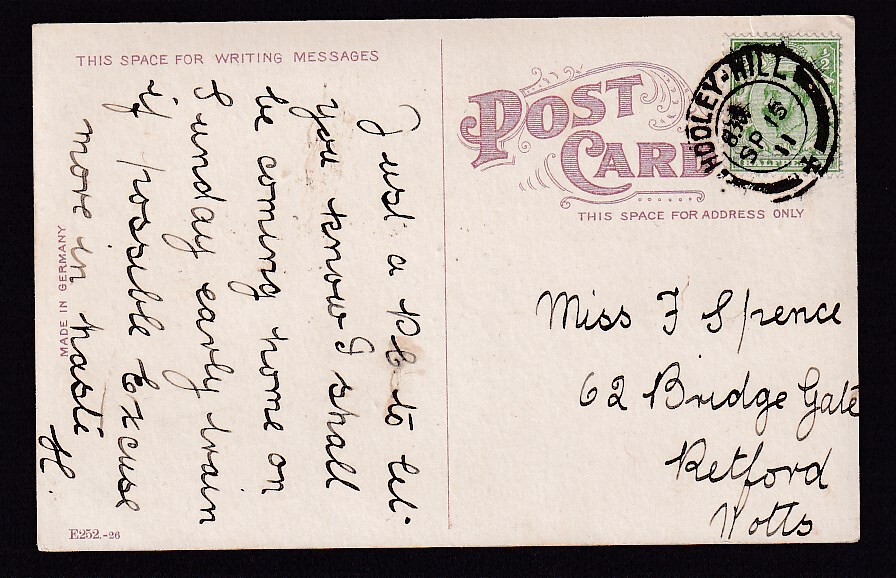 THIS SPACE FOR WRITING MESSAGES
Just a P.C. to let
you know I shall
be coming home on
Sunday early train
if possible Excuse
more in haste
H.
MADE IN GERMANY
E252.-26
POST
CARD
THIS SPACE FOR ADDRESS ONLY
½
HOOLEY-HILL
SP 15
11
Miss F Spence
62 Bridge Gate
Retford
Notts